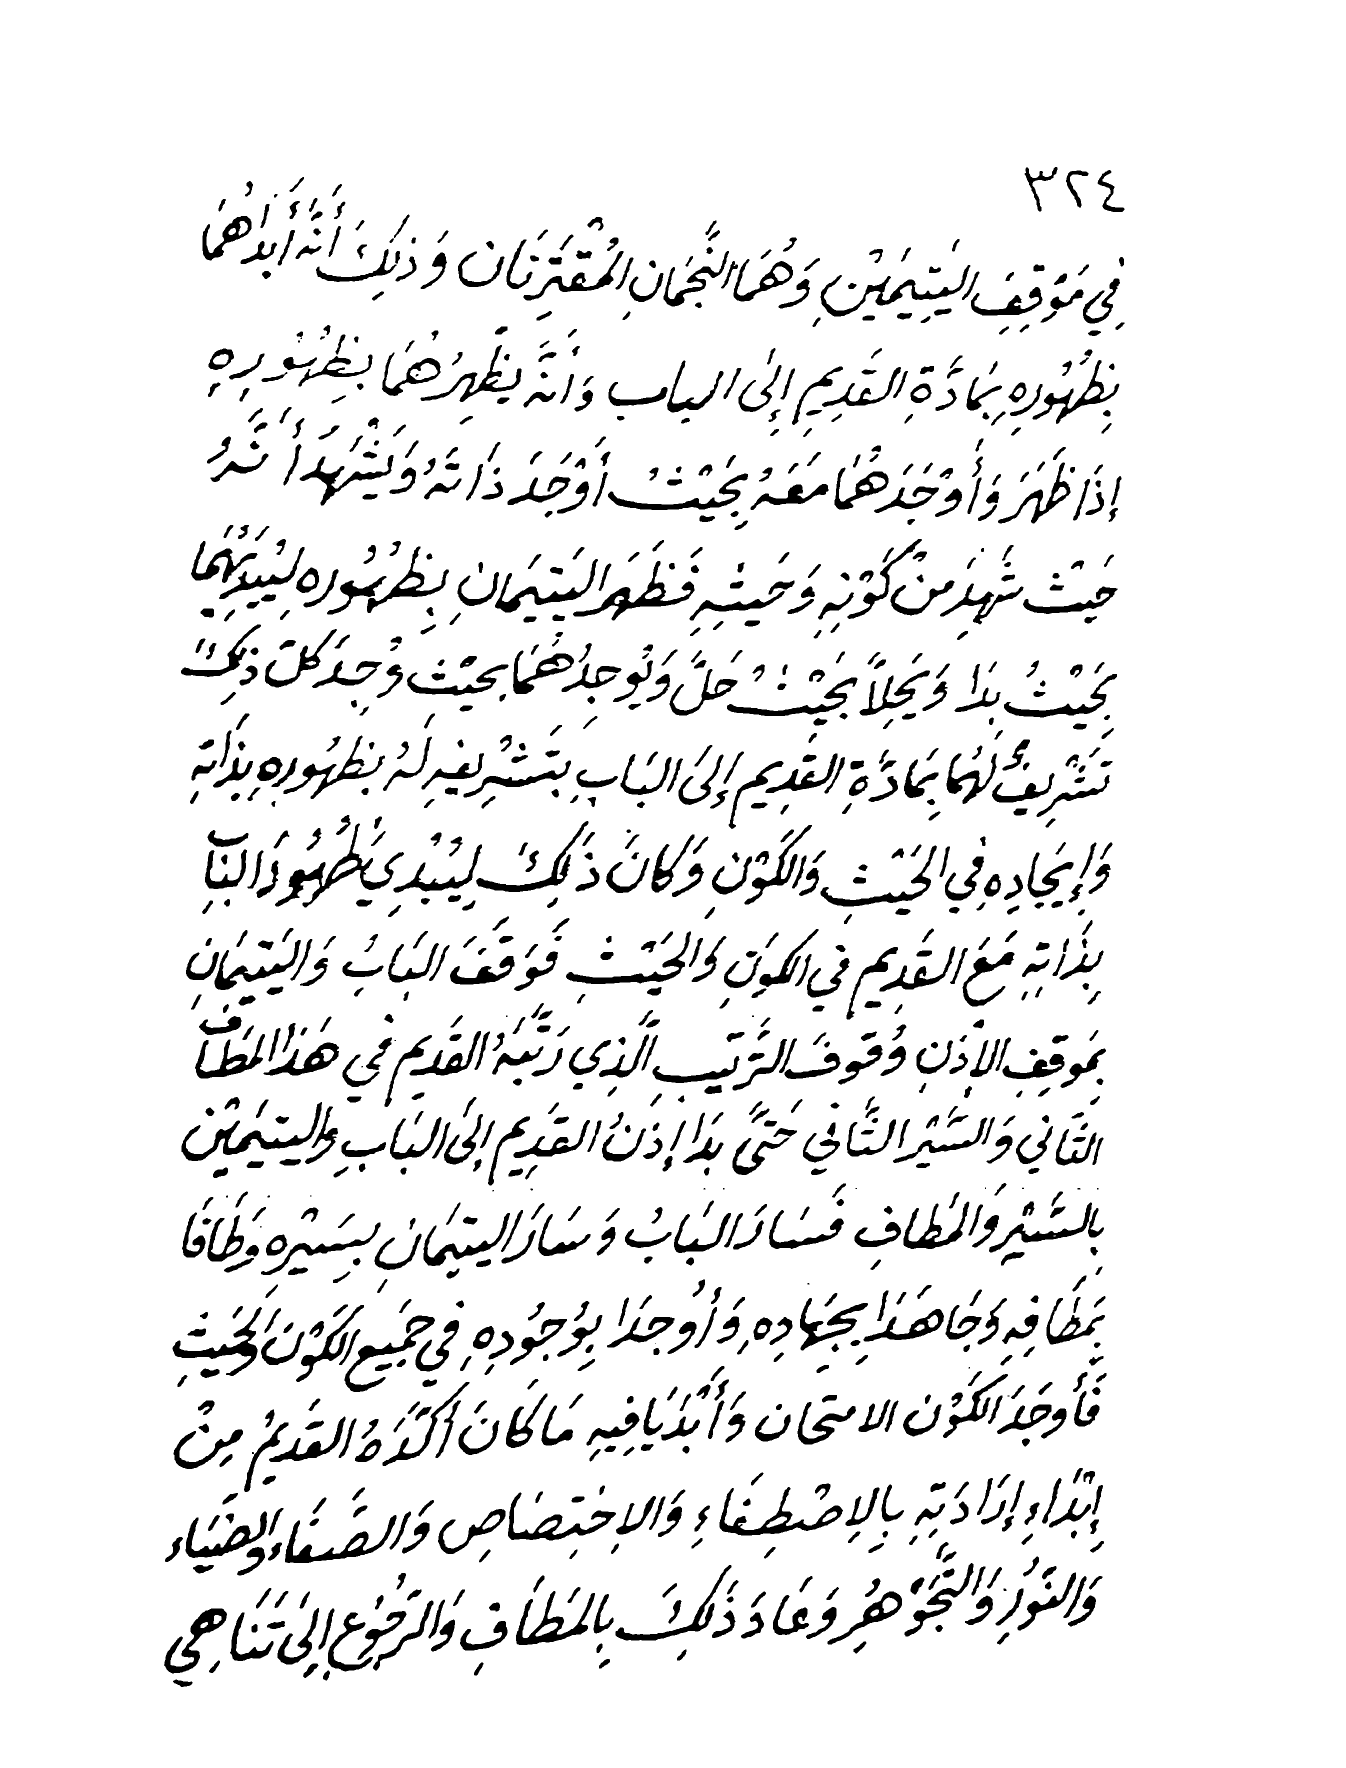 ٣٢٤
فِي مَوْقِفِ اليَتِيمَيْنِ وَهُمَا النَّجْمَانِ المُقْتَرِنَان وَذلِكَ أَنَّهُ أَبدَاهُمَا
بِظُهُورِهِ بِمَادَّةِ القَدِيمِ إِلى الباب وَأَنَّه يظْهِرُهُمَا بِظُهُورِهِ
إِذَا ظَهَرَ وَأَوْجَدَهُمَا مَعَهُ بِحَيْثُ أَوْجَدَ ذَاتَهُ وَيَشْهَدَ أَنَّهُ
حَيْث شَهِدَ مِنْ كَوْنِهِ وَحَيثِهِ فَظَهَرَ اليَتِيمَانِ بِظهُورِهِ لِيُبْدِيَهُمَا
بِحَيْثُ بدَا وَيَحِلاَّ بِحَيْثُ حَلَّ وَيُوجِدُهُمَا بحيْث وُجِدَ كلّ ذلِكَ
تَشْرِيفٌ لَهُمَا بِمَادَّةِ القَدِيمِ إِلَى البَابِ بِتَشْرِيفِهِ لَهُ بظهُورِهِ بِذَاتِهِ
وَإِيجَادِهِ فِي الحَيْثِ وَالكَوْنِ وَكَانَ ذَلِكَ لِيُبْدِيَ ظُهُورَ البَابِ
بِذَاتِهِ مَعَ القَدِيمِ فِي الكَونِ وَالحَيْثِ فَوَقَفَ البَابُ وَاليَتِيمَانِ
بِمَوقِفِ الإذنِ وُقوفَ التَّرتِيبِ الَّذِي رَتَّبَهُ القَدِيم فِي هَذا المَطَاف
الثَّانِي وَالسَّيْر الثَّانِي حَتَّى بَدَا إِذنُ القَدِيم إِلَى البَابِ وَاليتيمَيْن
بِالسَّيْرِ وَالمَطافِ فَسَارَ البَابُ وَسَارَ اليتيمَانِ بِسَيْرِهِ وَطَافَا
بِمَطَافِهِ وَجَاهَدَا بِجِهَادِهِ وَأُوجدَا بِوُجُودِهِ فِي جَمِيعِ الكَوْنِ وَالحَيثِ
فَأَوجَدَ الكَوْن الامتحان وَأَبْدَيَا فِيهِ مَا كَانَ أَكّدَهُ القَدِيمُ مِنْ
إِبْدَاءِ إِرَادَتِهِ بِالِاصْطِفَاءِ وَالِاخْتِصَاصِ وَالصَّفَاءِ وَالضِيَاء
وَالنُّورِ وَالتَّجَوْهُرِ وَعَادَ ذَلِكَ بِالمَطَافِ وَالرّجُوعِ إِلَى تَنَاهِي